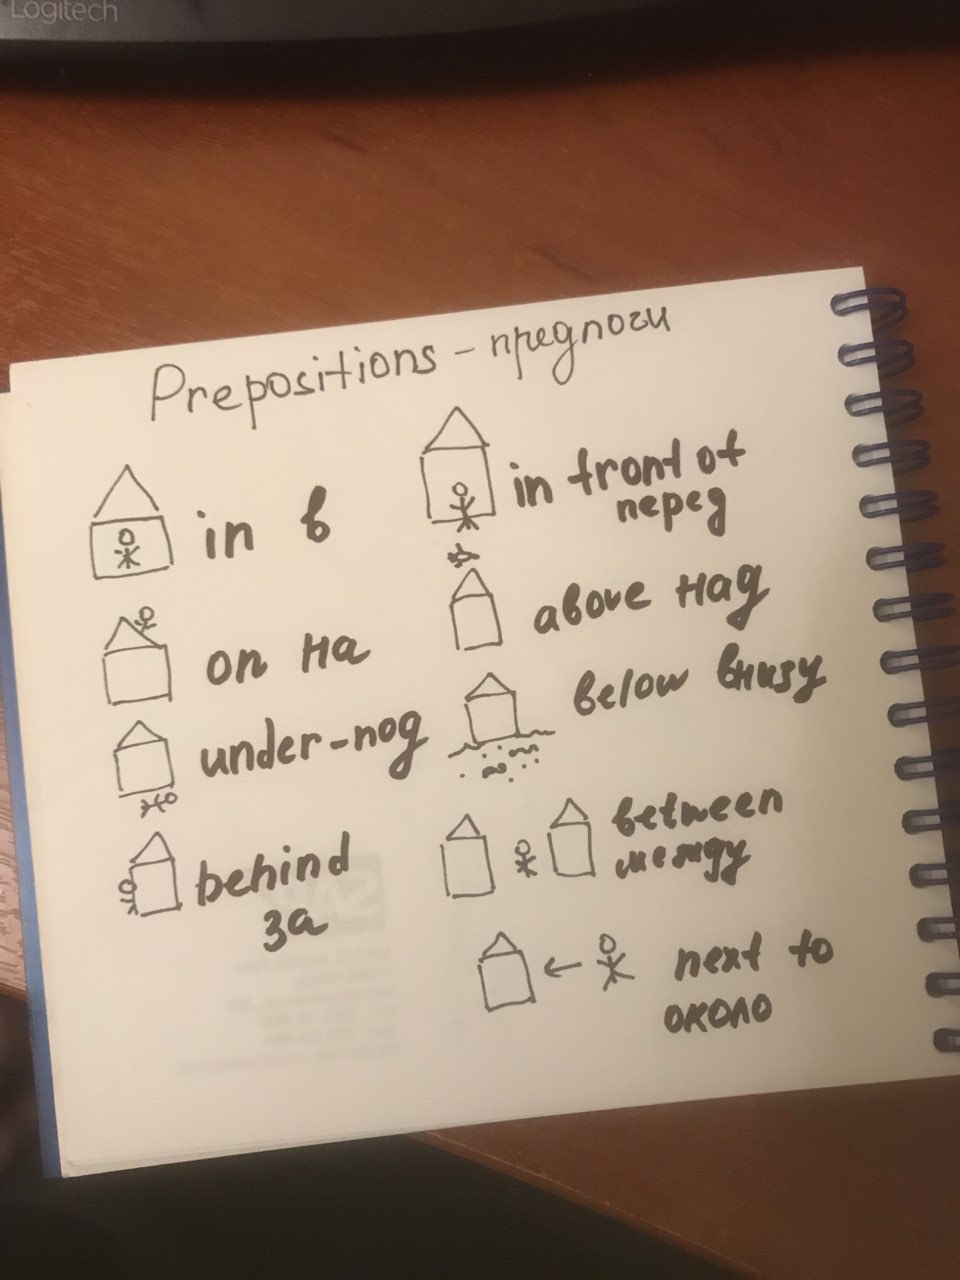 Logitech
Prepositions - предлоги
in в
on на
under-под
behind
за
in front of
перед
above над
below внизу
between
между
next to
около